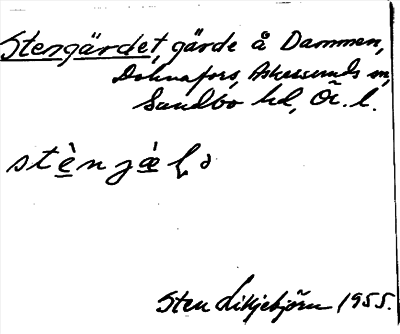 Stengärdet, gärde å Dammen,
Dohnafors, Askersunds sn,
Sundbo hd, Ör. l.
stèngǽḷə
Sten Liljebjörn 1955.